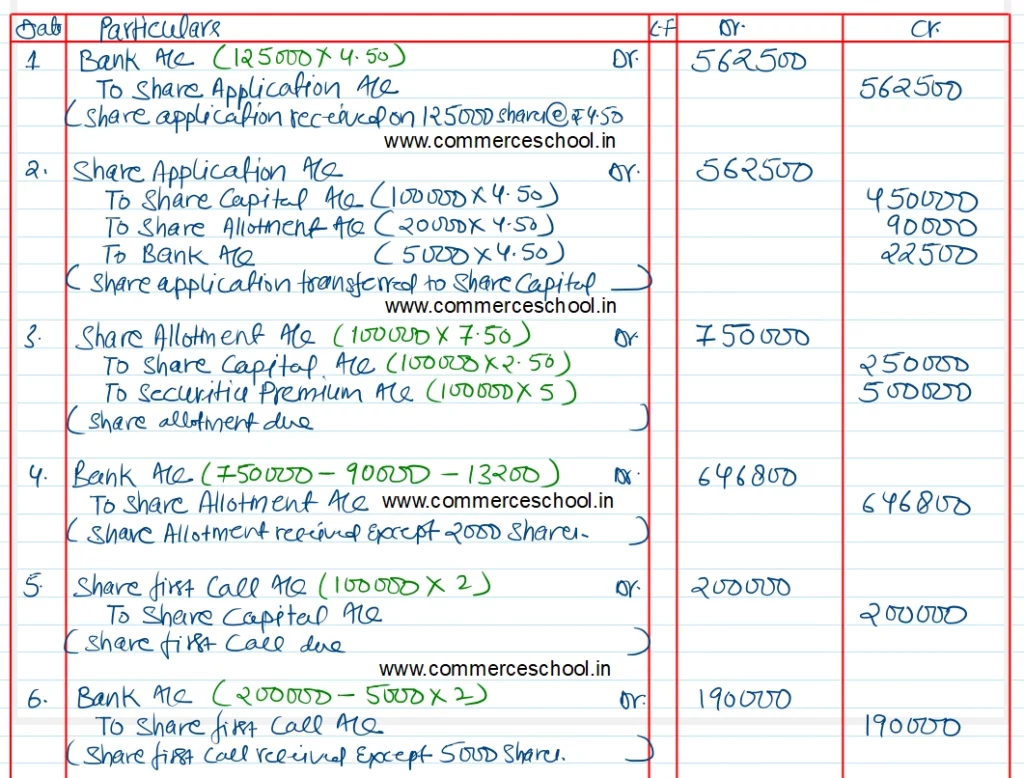 Date Particulars L.F Dr. Cr.
1 Bank A/c (125000 X 4.50) Dr. 562500
To Share Application A/c 562500
(Share application received on 125000 share@₹4.50
www.commerceschool.in
2. Share Application A/c Dr. 562500
To Share Capital A/c (100000 X 4.50) 450000
To Share Allotment A/c (20000 X 4.50) 90000
To Bank A/c (5000 X 4.50) 22500
(Share application transferred to Share Capital )
www.commerceschool.in
3. Share Allotment A/c (100000 X 7.50) Dr 750000
To Share Capital A/c (100000 X 2.50) 250000
To Securities Premium A/c (100000 X 5) 500000
(Share allotment due )
4. Bank A/c (750000 - 90000 - 13200) Dr. 646800
To Share Allotment A/c www.commerceschool.in 646800
(Share Allotment received Except 2000 Shares. )
5. Share first Call A/c (100000 X 2) Dr. 200000
To Share Capital A/c 200000
(Share first Call due )
www.commerceschool.in
6. Bank A/c (200000 - 5000 X 2) Dr. 190000
To Share first Call A/c 190000
(Share first Call received Except 5000 Shares. )